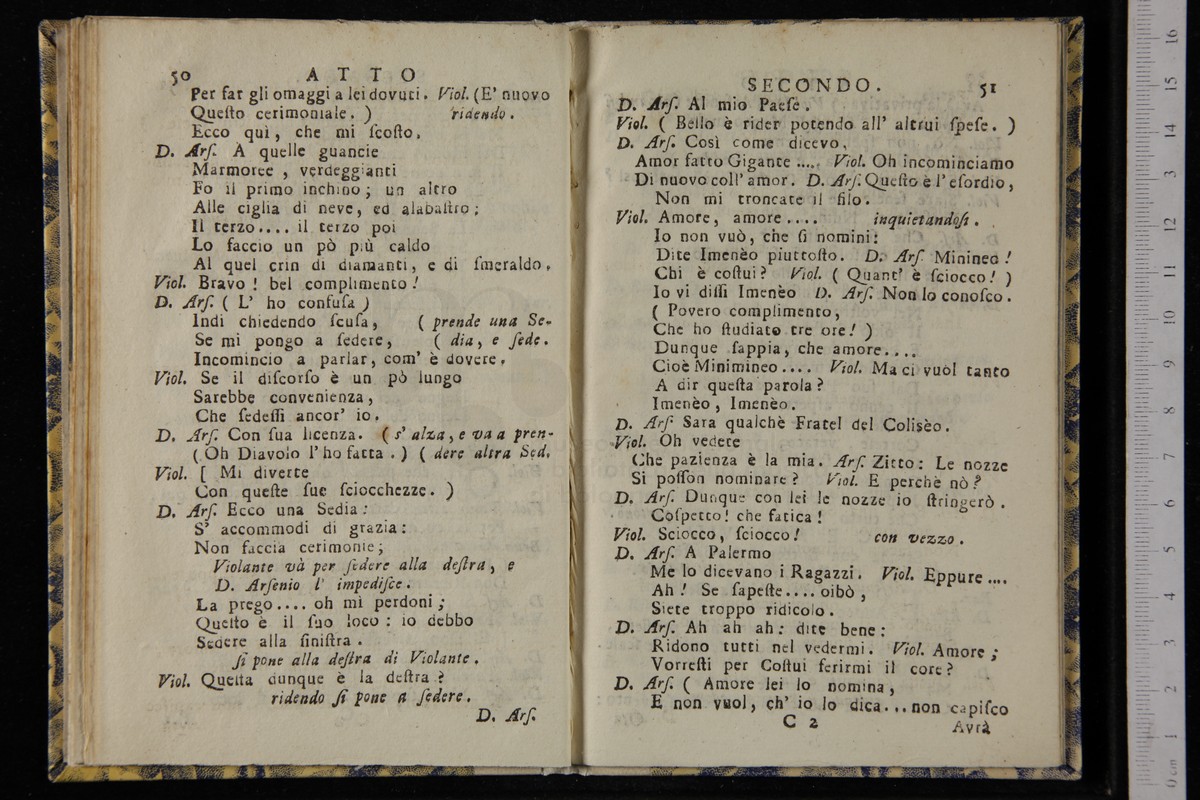 50 ATTO
Per far gli omaggi a lei dovuti. Viol. (E' nuovo
Queſto cerimoniale. ) ridendo.
Ecco quì, che mi ſcoſto.
D. Arſ. A quelle guancie
Marmoree, verdeggianti
Fo il primo inchino; un altro
Alle ciglia di neve, ed alabaſtro;
Il terzo.... il terzo poi
Lo faccio un pò più caldo
Al quel crin di diamanti, e di ſmeraldo.
Viol. Bravo! bel complimento!
D. Arſ. ( L' ho confuſa )
Indi chiedendo ſcuſa, ( prende una Se-
Se mi pongo a ſedere, ( dia, e ſede.
Incomincio a parlar, com' è dovere.
Viol. Se il diſcorſo è un pò lungo
Sarebbe convenienza,
Che ſedeſſi ancor' io.
D. Arſ. Con ſua licenza. ( s' alza, e va a pren-
( Oh Diavolo l' ho fatta . ) ( dere altra Sed.
Viol. [ Mi diverte
Con queſte ſue ſciocchezze. )
D. Arſ. Ecco una Sedia:
S' accommodi di grazia:
Non faccia cerimonie;
Violante và per ſedere alla deſtra, e
D. Arſenio l' impediſce.
La prego.... oh mi perdoni;
Queſto è il ſuo loco: io debbo
Sedere alla ſiniſtra.
ſi pone alla deſtra di Violante.
Viol. Queſta dunque è la deſtra?
ridendo ſi pone a ſedere.
D. Arſ.
SECONDO. 51
D. Arſ. Al mio Paeſe.
Viol. ( Bello è rider potendo all' altrui ſpeſe. )
D. Arſ. Così come dicevo,
Amor fatto Gigante ..... Viol. Oh incominciamo
Di nuovo coll' amor. D. Arſ. Queſto è l' eſordio,
Non mi troncate il filo.
Viol. Amore, amore.... inquietandoſi.
Io non vuò, che ſi nomini:
Dite Imenèo piuttoſto. D. Arſ. Minineo!
Chi è coſtui? Viol. ( Quant' è ſciocco! )
Io vi diſſi Imenèo D. Arſ. Non lo conoſco.
( Povero complimento,
Che ho ſtudiato tre ore! )
Dunque ſappia, che amore....
Cioè Minimineo.... Viol. Ma ci vuol tanto
A dir queſta parola?
Imenèo, Imenèo.
D. Arſ Sara qualchè Fratel del Coliſèo.
Viol. Oh vedete
Che pazienza è la mia. Arſ. Zitto: Le nozze
Si poſſon nominare? Viol. E perchè nò?
D. Arſ. Dunque con lei le nozze io ſtringerò.
Coſpetto! che fatica!
Viol. Sciocco, ſciocco! con vezzo.
D. Arſ. A Palermo
Me lo dicevano i Ragazzi. Viol. Eppure....
Ah! Se ſapeſte.... oibò,
Siete troppo ridicolo.
D. Arſ. Ah ah ah: dite bene:
Ridono tutti nel vedermi. Viol. Amore;
Vorreſti per Coſtui ferirmi il core?
D. Arſ. ( Amore lei lo nomina,
E non vuol, ch' io lo dica... non capiſco
C 2 Avrà
0 cm 1 2 3 4 5 6 7 8 9 10 11 12 13 14 15 16